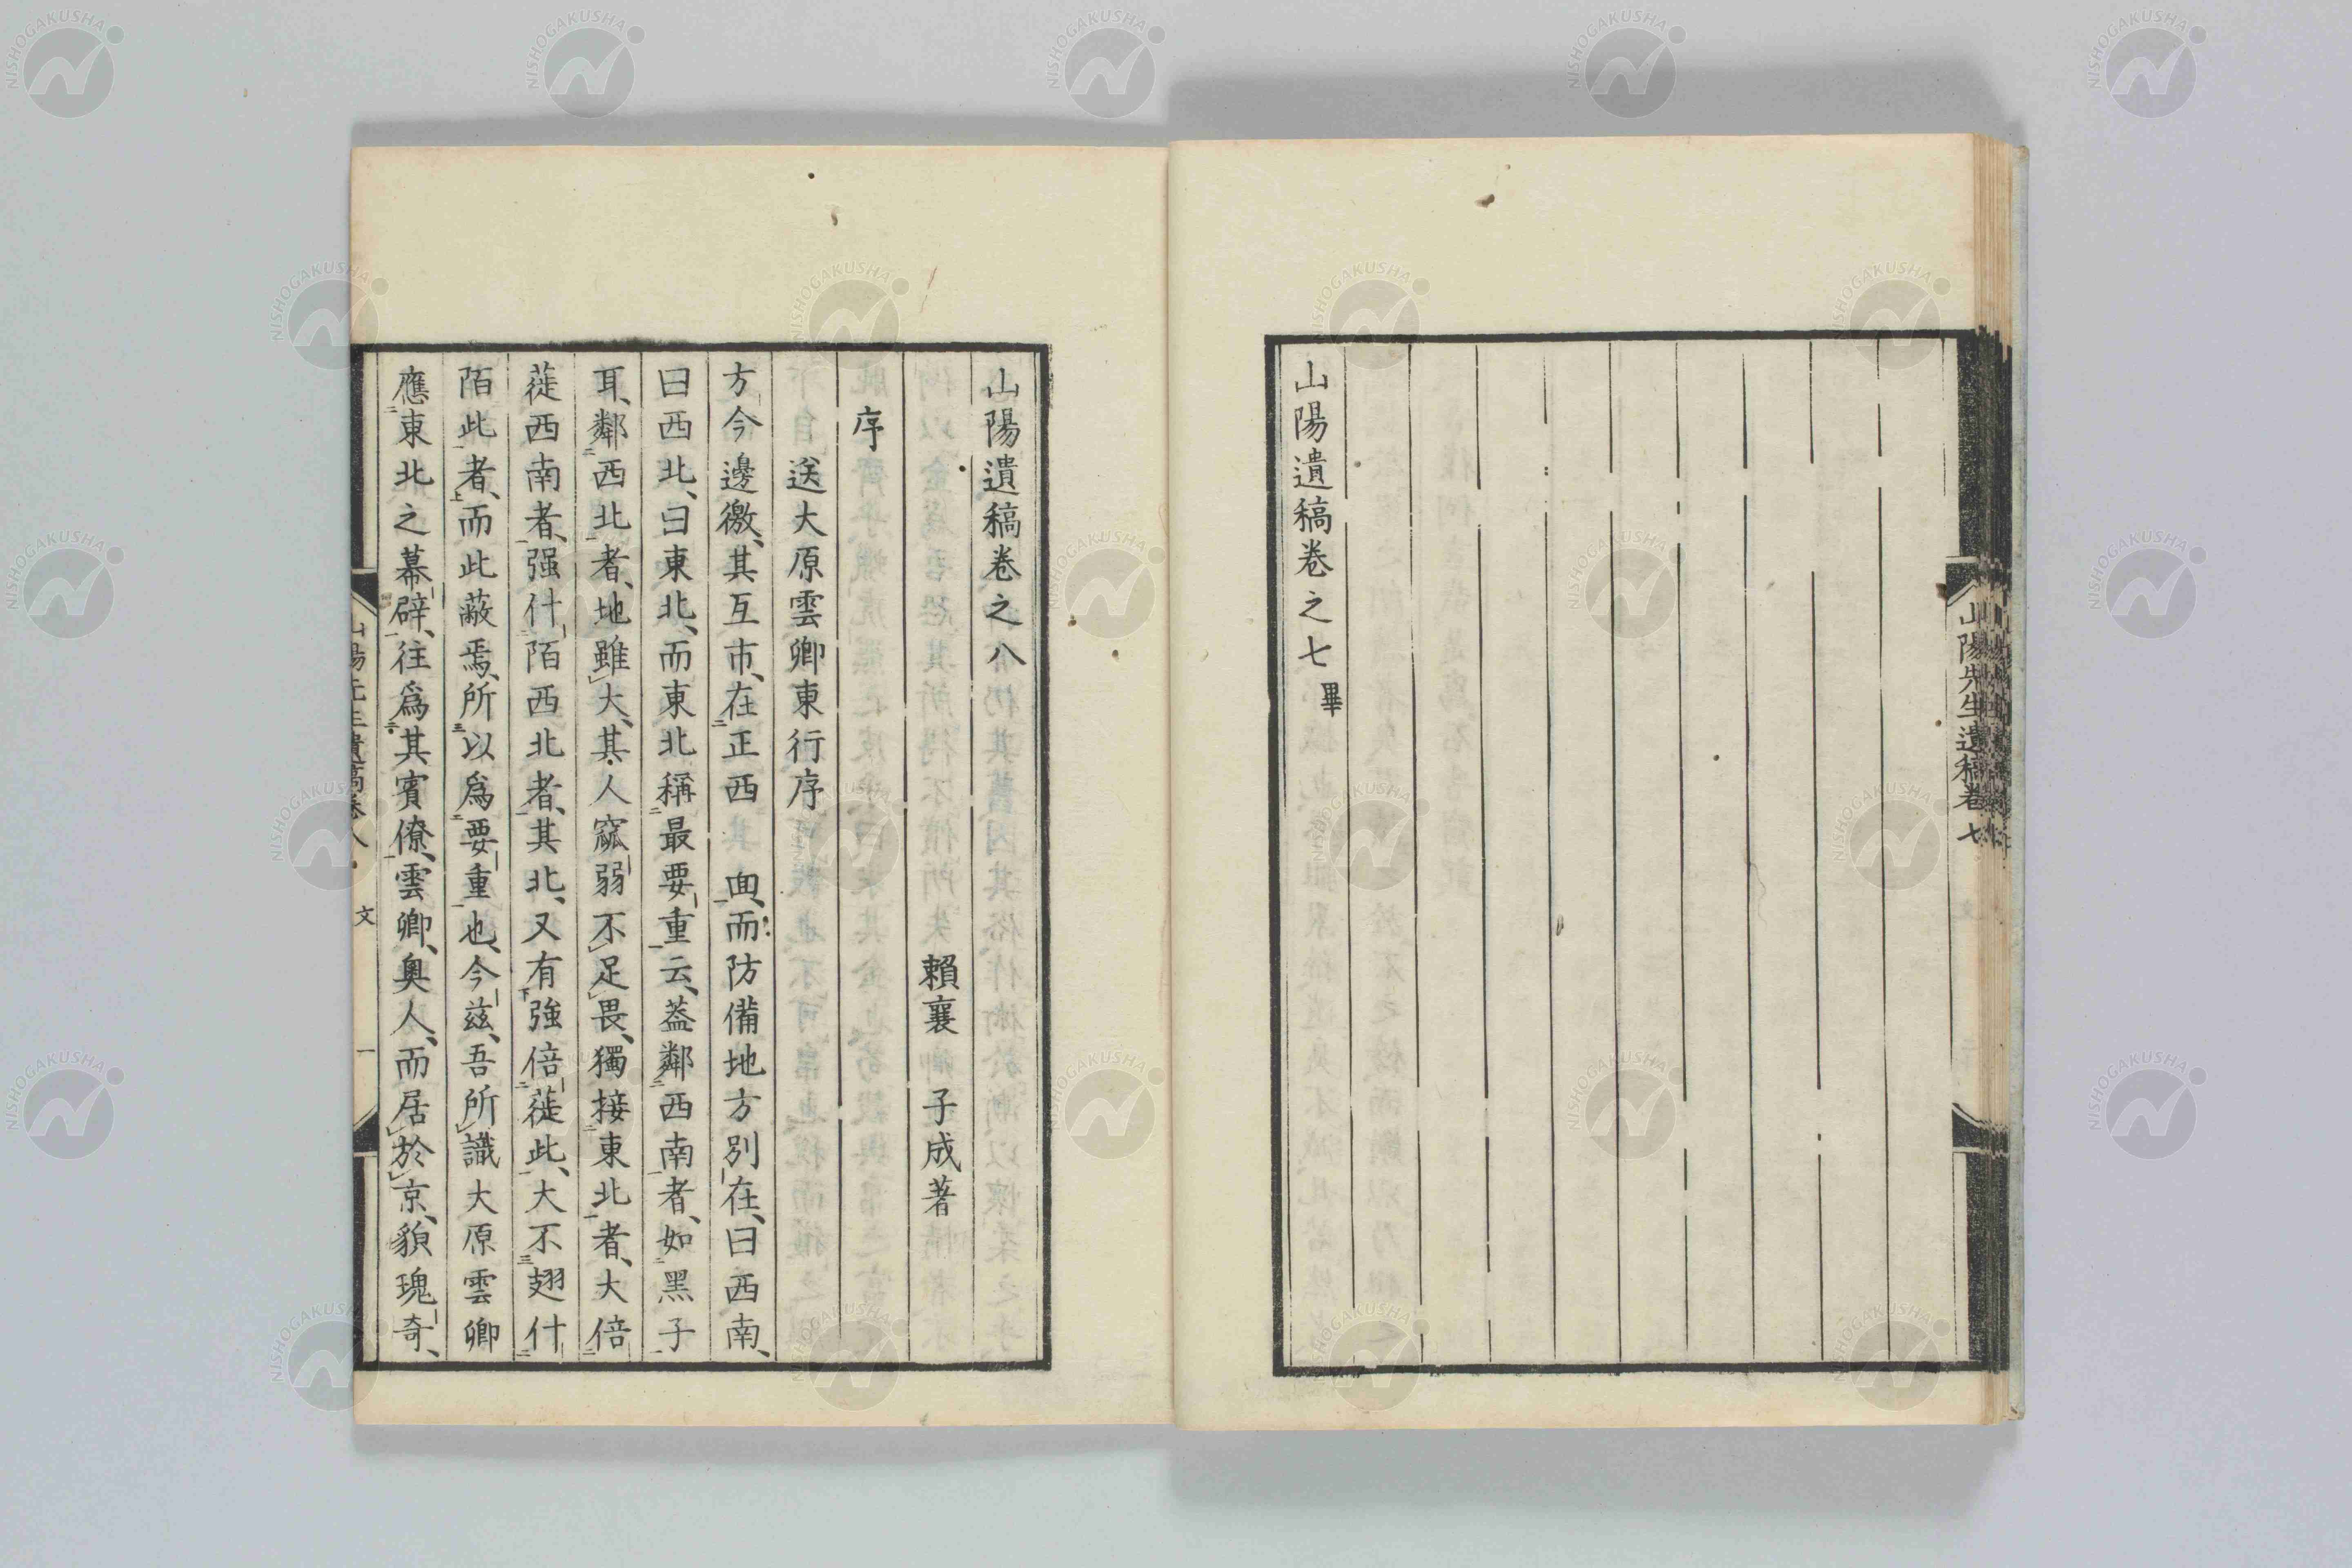 山陽先生遺稿卷七
山陽遺稿卷之七 畢
山陽遺稿卷之八
賴襄 子成著
序
送大原雲卿東行序
方今邊徼、其互市、在正西 面、而防備地方別在、曰西南、
曰西北、曰東北、而東北稱最要重云、蓋鄰西南者、如黑子
耳、鄰西北者、地雖大、其人窳弱不足畏、獨接東北者、大倍
蓰西南者、强什陌西北者、其北、又有強倍蓰此、大不翅什
陌此者、而此蔽焉、所以爲要重也、今茲、吾所識大原雲卿
應東北之幕辟、往爲其賓僚、雲卿、奥人、而居於京、貌瑰奇、
文
一
NISHOGAKUSHA